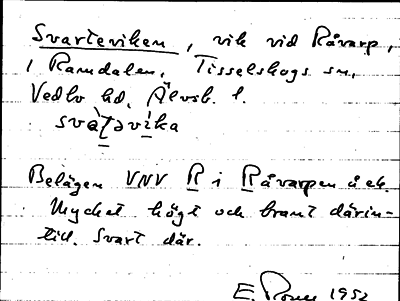 Svarteviken, vik vid Råvarp,
i Ramdalen, Tisselskogs sn,
Vedbo hd, Älvsb. l.
svat̥əvika
Belägen VNV R i Råvarpen å ek.
Mycket högt och brant därin-
till. Svart där.
E. 1952